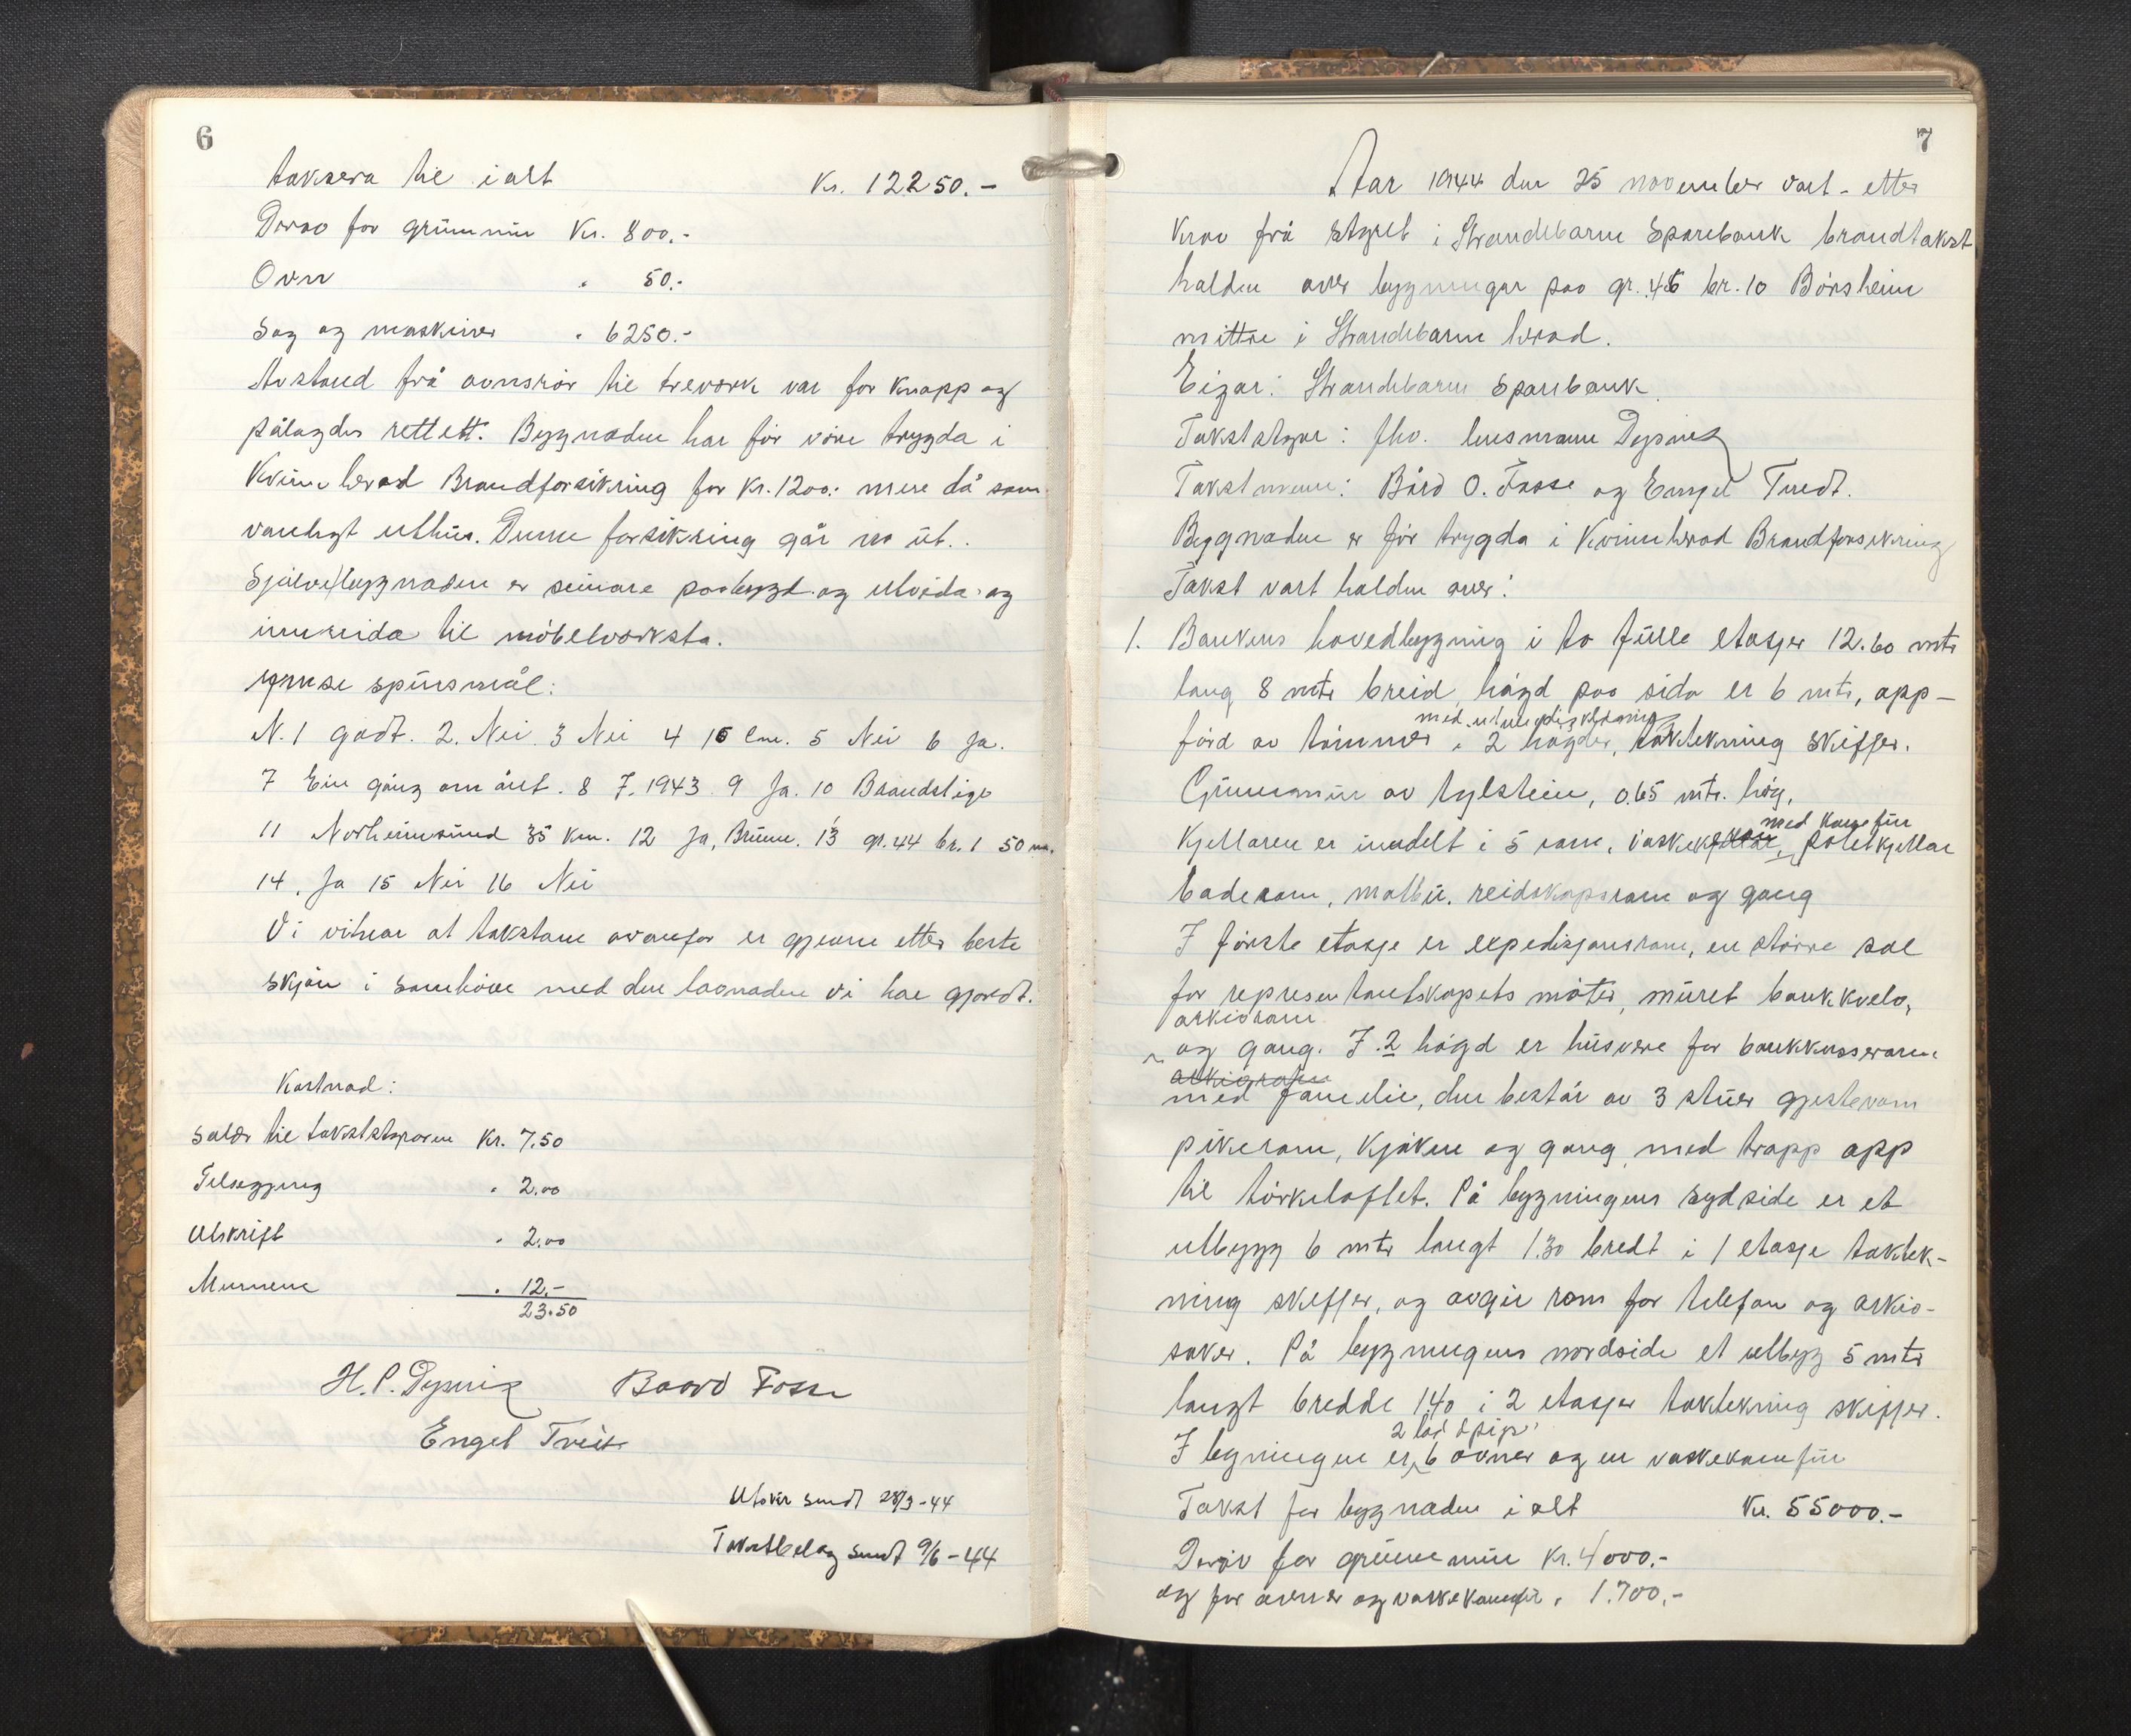 6
taksera til ialt Kr. 12250.-
Derav for grunnmur Kr. 800.-
Ovn " 50.-
Sag og maskiner " 6250.-
Avstand frå ovnsrör til treverk var for knapp og
pålagdes rettett. Bygnaden har för vöre trygda i
Kvinnherad Brandforsikring for Kr. 1200.- mere då som
vanlegt uthus. Denne forsikring går no ut.
Sjølve bygnaden er seinare paabygd og utvida og
innreida til möbelverksta.
Ymse spursmål:
N. 1 godt. 2. Nei 3 Nei 4 15 cm. 5 Nei 6 Ja.
7 Ein gång om året. 8 7. 1943. 9 Ja. 10 Brandstige
11 Norheimsund 35 km. 12 Ja, Brunn. 13 gr. 44 br. 1 50 m.
14. Ja 15 Nei 16 Nei
Vi vitnar at takstane ovanfor er gjevne etter beste
skjön i samhöve med den lovnaden vi har gjordt.
Kostnad:
Salær til takststyraren Kr. 7.50
Tilsegging " 2.00
Utskrift " 2.00
Mennene " 12.-
23.50
H. P. Dysvik Baard Fosse
Engel Tveit
Utskr sendt 28/3-44
Takstbelag sendt 9/6-44
7
Aar 1944 den 25 november vart - etter
krav frå styret i Strandebarm Sparebank brandtakst
halden over bygningar paa gr. 46 br. 10 Börsheim
mittre i Strandebarm herad.
Eigar: Strandebarm Sparebank.
Takststyrar: fhv. lensmann Dysvik
Takstmenn: Bård O. Fosse og Engel Tvedt.
Bygnaden er för trygda i Kvinnherad Brandforsikring
Takst vart halden over:
1. Bankens hovedbygning i to fulle etasjer 12.60 mtr
lang 8 mtr breid högd paa sida er 6 mtr, opp-
med utvendig kledning
förd av tömmer i 2 högder, taktekning skiffer.
Grunnmur av tylstein, 0.65 mtr. hög.
med kamefur
Kjellaren er inndelt i 5 rom, vaskekjellar, potetkjellar
baderom, matbu, reidskapsrom og gang
I förste etasje er expedisjonsrom, en större sal
for representantskapets möter, muret bankkvelv,
arkivrom
og gang. I 2 högd er husvere for bankkasseraren
arkivrom
med familie, den består av 3 stuer gjesterom
pikerom, kjöken og gang, med trapp opp
til törkeloftet. På bygningens sydside er et
utbygg 6 mtr langt 1.30 bredt i 1 etasje taktek-
ning skiffer, og avgir rom for telefon og arkiv-
saker. På bygningens nordside et utbyg 5 mtr
langt bredde 1.40 i 2 etasjer taktekning skiffer.
2 lör pipe
I bygningen er 6 ovner og en vaskekamfur
Takst for bygnaden i alt Kr. 55000.-
Derav for grunnmur Kr. 4000.-
og for ovner og vaskekamfur " 1.700.-